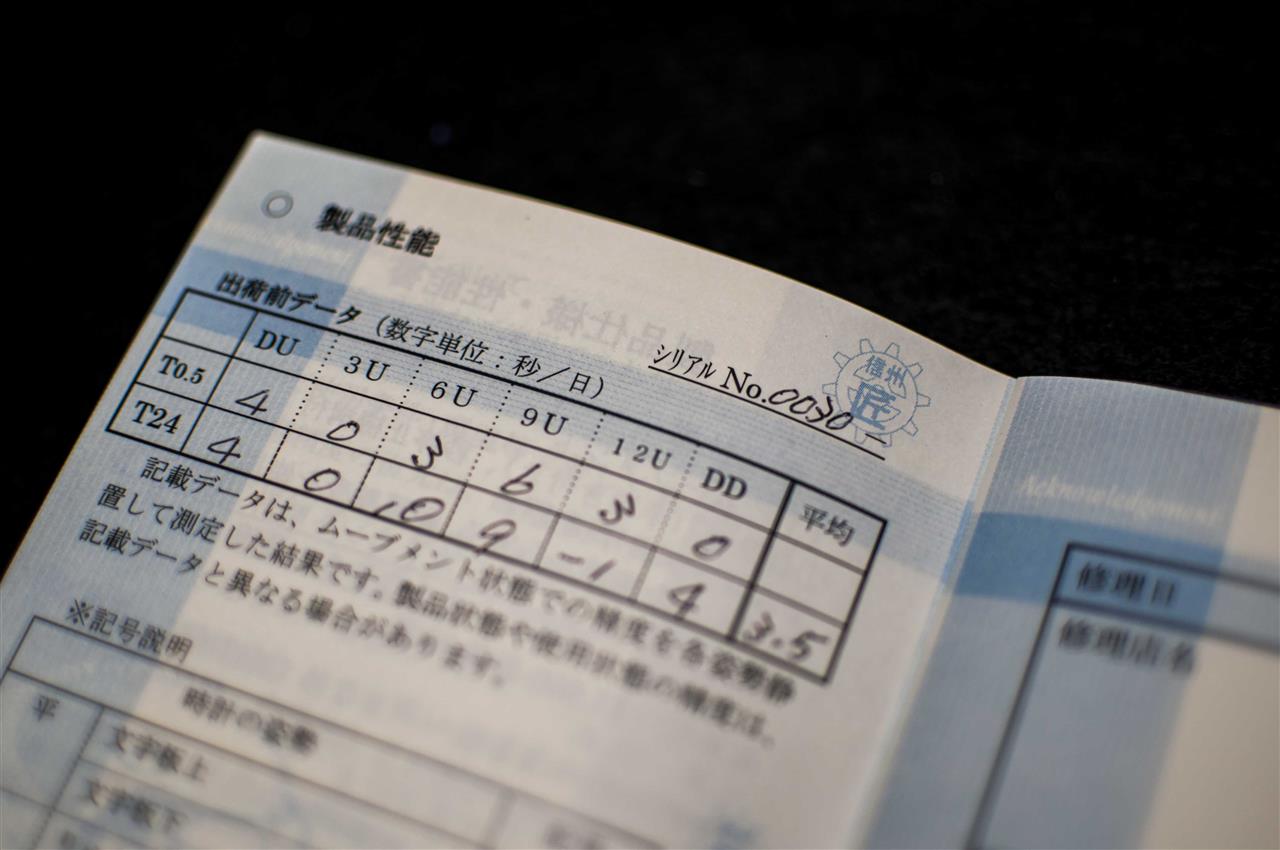 製品性能
出荷前データ（数字単位：秒／日）
シリアル No.0030
信州
匠
DU 3U 6U 9U 12U DD 平均
T0.5 4 0 3 6 3 0
T24 4 0 10 9 -1 4 3.5
記載データは、ムーブメント状態での精度を各姿勢静
置して測定した結果です。製品状態や使用状態の精度は、
記載データと異なる場合があります。
※記号説明
時計の姿勢
平
文字板上
文字板下
Acknowledgement
修理日
修理店名